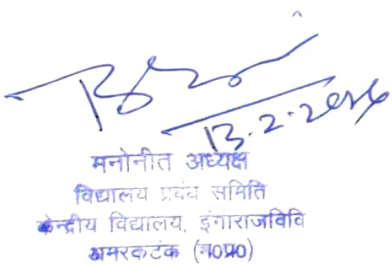 13.2.2024
मनोनीत अध्यक्ष
विद्यालय प्रबंध समिति
केन्द्रीय विद्यालय, इंगाराजविवि
अमरकटंक (म0प्र0)